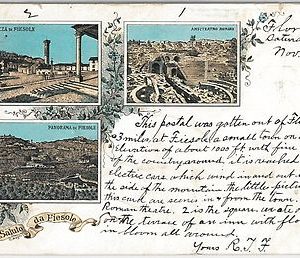 2
1
PIAZZA DI FIESOLE
ANFITEATRO ROMANO
Flor
Saturda
Nov.
This postal was gotten out of Fl
3 miles, at Fiesole a small town on
elevation of about 1000 feet with fine
of the country around, it is reached
electric cars which wind in and out
the side of the mountain the little pictu
this card are scenes in & from the town. 1
Roman theatre. 2 is the square. we ate
on the terrace of an inn with flo
in bloom all around.
Yours R. T. F.
PANORAMA DI FIESOLE
Saluto da Fiesole